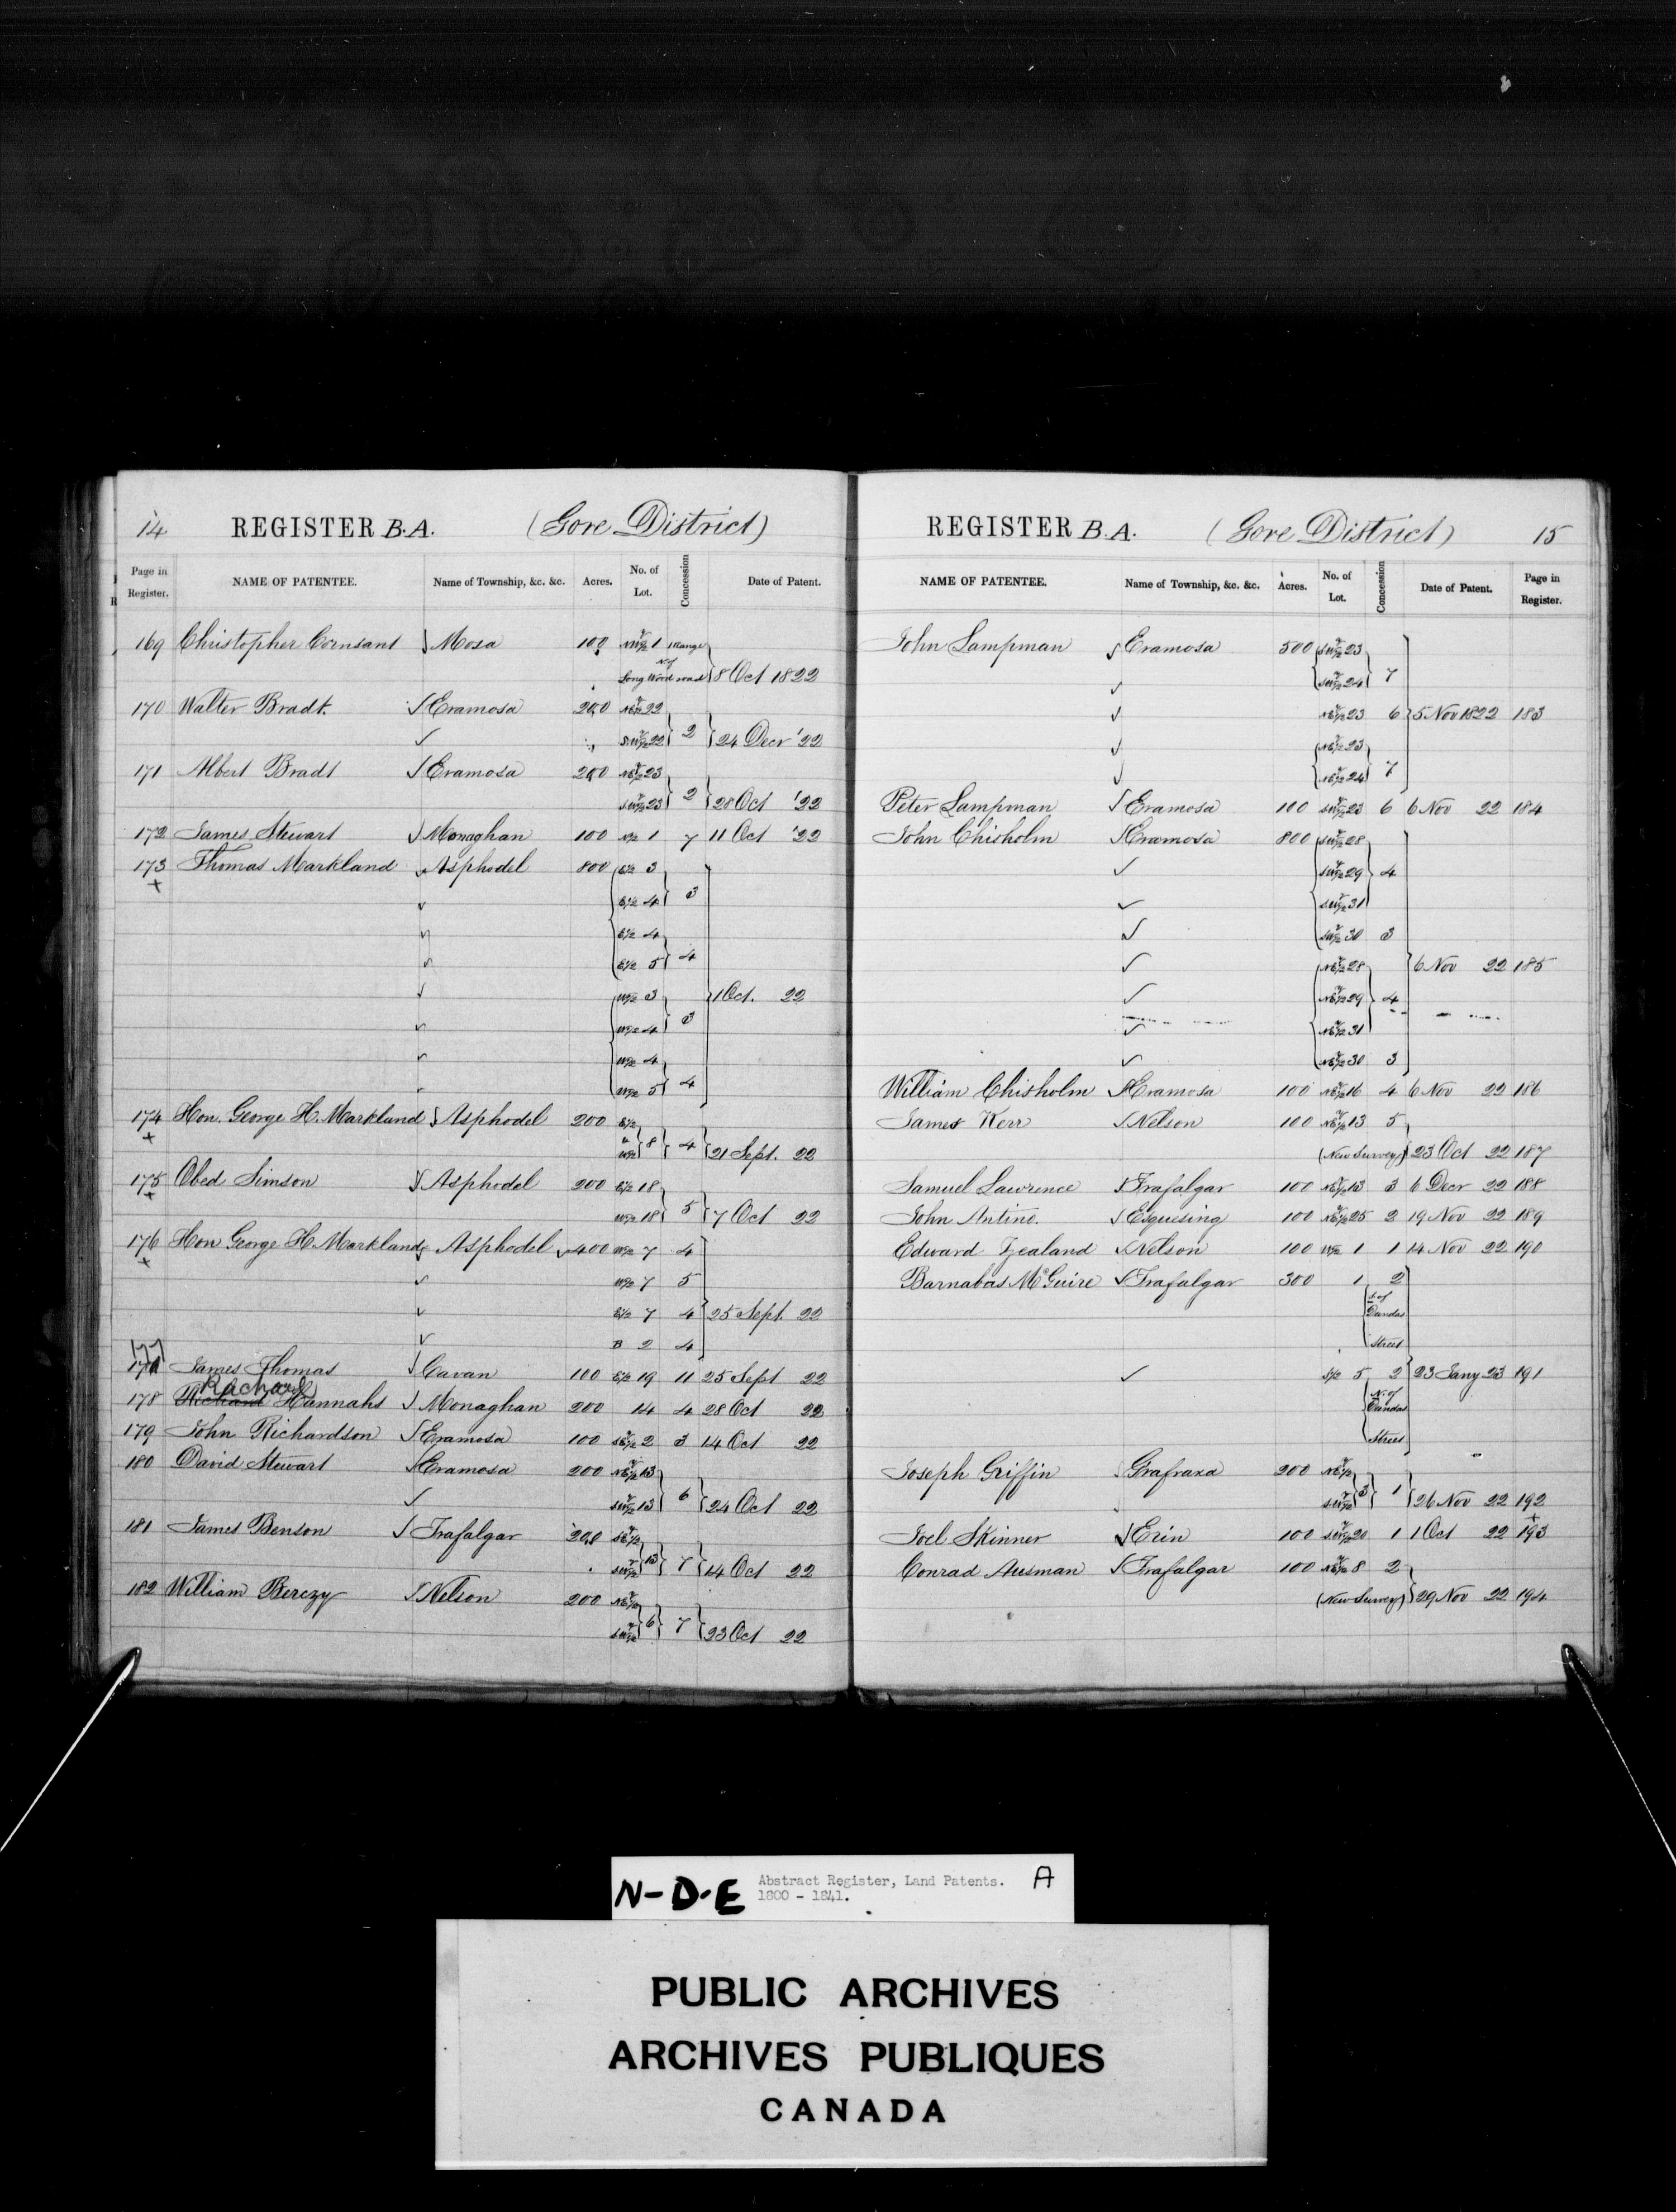 14 REGISTER B.A. (Gore District)
Page in Register. NAME OF PATENTEE. Name of Township, &c. &c. Acres. No. of Lot. Concession Date of Patent.
169 Christopher Cornsant Mosa 100 NW½ 1 1 Range
N of
Long Wood road 8 Oct 1822
170 Walter Bradt. Eramosa 200 NE½ 22
✓ SW½ 22 2 24 Decr '22
171 Albert Bradt Eramosa 200 NE½ 23
SW½ 23 2 28 Oct '22
172 James Stewart Monaghan 100 N½ 1 7 11 Oct '22
173 Thomas Markland Asphodel 800 E½ 3
+ ✓ E½ 4 3
✓ E½ 4
✓ E½ 5 4
✓ W½ 3 1 Oct. 22
✓ W½ 4 3
✓ W½ 4
✓ W½ 5 4
174 Hon. George H. Markland Asphodel 200 E½
+ " W½ 8 4 21 Sept. 22
175 Obed Simson Asphodel 200 E½ 18
+ W½ 18 5 7 Oct 22
176 Hon George H. Markland Asphodel 400 W½ 7 4
+ ✓ W½ 7 5
✓ E½ 7 4 25 Sept. 22
✓ B 2 4
177 James Thomas Cavan 100 E½ 19 11 25 Sept 22
Richard
178 Richard Hannahs Monaghan 200 14 4 28 Oct 22
179 John Richardson Eramosa 100 SE½ 2 3 14 Oct 22
180 David Stewart Eramosa 200 NE½ 13
✓ SW½ 13 6 24 Oct 22
181 James Benson Trafalgar 200 SE½
SW½ 13 7 14 Oct 22
182 William Berczy Nelson 200 NE½
SW½ 6 7 23 Oct 22
REGISTER B.A. (Gore District) 15
NAME OF PATENTEE. Name of Township, &c. &c. Acres. No. of Lot. Concession Date of Patent. Page in Register.
John Lampman Eramosa 500 SW½ 23
✓ SW½ 24 7
✓ NE½ 23 6 5 Nov 1822 183
✓ NE½ 23
✓ NE½ 24 7
Peter Lampman Eramosa 100 SW½ 23 6 6 Nov 22 184
John Chisholm Eramosa 800 SW½ 28
✓ SW½ 29 4
✓ SW½ 31
✓ SW½ 30 3
✓ NE½ 28 6 Nov 22 185
✓ NE½ 29 4
✓ NE½ 31
✓ NE½ 30 3
William Chisholm Eramosa 100 NE½ 16 4 6 Nov 22 186
James Kerr Nelson 100 NE½ 13 5
(New Survey) 23 Oct 22 187
Samuel Lawrence Trafalgar 100 NE½ 13 3 6 Decr 22 188
John Antino. Esquesing 100 NE½ 25 2 19 Nov 22 189
Edward Zealand Nelson 100 W½ 1 1 14 Nov 22 190
Barnabas McGuire Trafalgar 300 1 2
S of
Dundas
Street
✓ S½ 5 2 23 Jany 23 191
N. of
Dundas
Street
Joseph Griffin Grafraxa 200 NE½
SW½ 3 1 26 Nov 22 192
+
Joel Skinner Erin 100 SW½ 20 1 1 Oct 22 193
Conrad Ausman Trafalgar 100 NE½ 8 2
(New Survey) 29 Nov 22 194
N-D-E Abstract Register, Land Patents. A
1800 - 1841.
PUBLIC ARCHIVES
ARCHIVES PUBLIQUES
CANADA